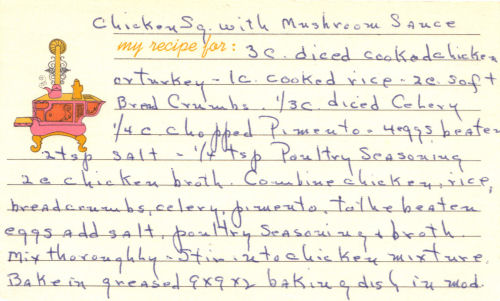 Chicken Sq. with Mushroom Sauce
my recipe for: 3 c. diced cooked chicken
or turkey - 1 c. cooked rice - 2 c. soft
Bread Crumbs. 1/3 c. diced Celery
1/4 c chopped Pimento - 4 eggs beaten
2 tsp salt - 1/4 tsp Poultry Seasoning
2 c chicken broth Combine chicken, rice,
breadcrumbs, celery, pimento, to the beaten
eggs add salt, poultry seasoning & broth
Mix thoroughly - Stir into chicken mixture.
Bake in greased 9x9x2 baking dish in mod.